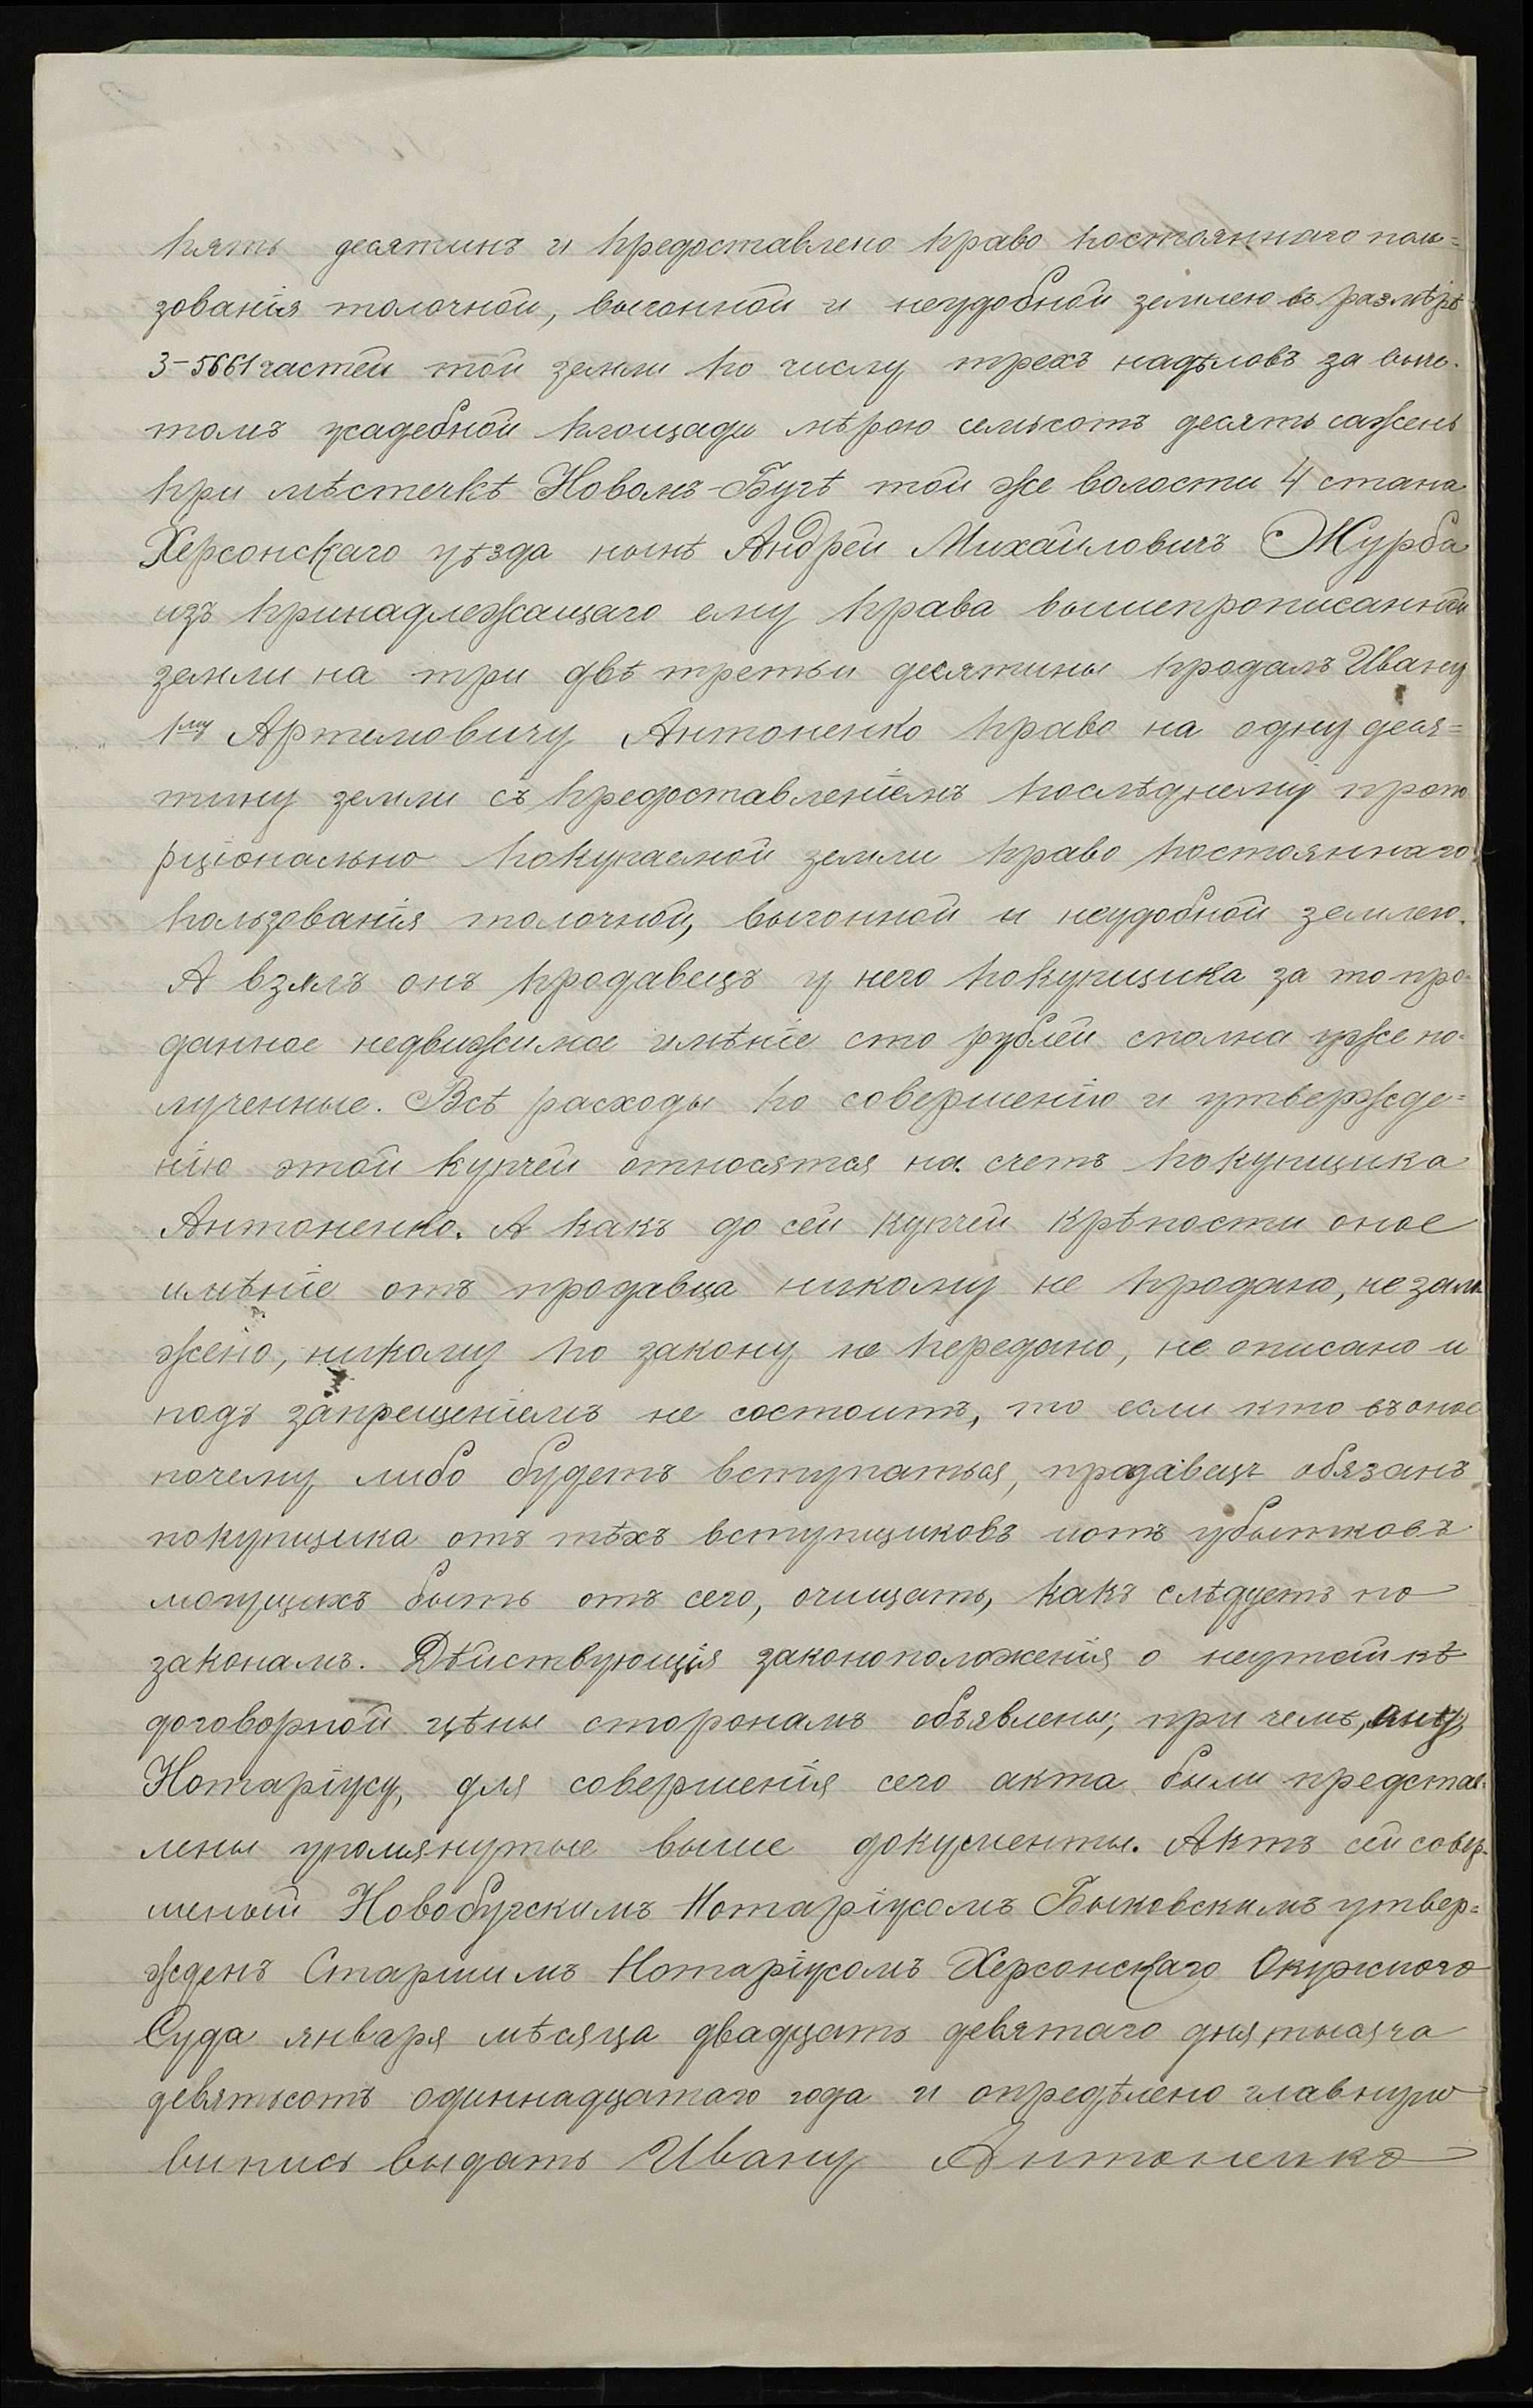 пять десятинъ и предоставлено право постояннаго поль=
зованія толочной, выгонной и неудобной землею въ размѣрѣ
3-5661 частей той земли по числу трехъ надѣловъ за выче-
томъ усадебной площади мѣрою семьсотъ десять сажень
при мѣстечкѣ Новомъ-Бугѣ той же волости 4 стана
Херсонскаго уѣзда нынѣ Андрей Михайловичъ Журба
изъ принадлежащаго ему права вышепрописанной
земли на три двѣ третьи десятины продалъ Ивану
1му Артемовичу Антоненко право на одну деся=
тину земли съ предоставленіемъ послѣднему пропо
рціонально покупаемой земли право постояннаго
пользованія толочной, выгонной и неудобной землею.
А взялъ онъ продавецъ у него покупщика за то про-
данное недвижимое имѣніе сто рублей сполна уже по-
лученные. Всѣ расходы по совершенію и утвержде=
нію этой купчей относятся на счетъ покупщика
Антоненко. А какъ до сей купчей крѣпости оное
имѣніе отъ продавца никому не продано, не зало
жено, никому по закону не передано, не описано и
подъ запрещеніемъ не состоитъ, то если кто въ оное
почему либо будетъ вступаться, продавецъ обязанъ
покупщика отъ тѣхъ вступщиковъ и отъ убытковъ
могущихъ быть отъ сего, очищать, какъ слѣдуетъ по
законамъ. Дѣйствующія законоположенія о неутайкѣ
договорной цѣны сторонамъ объявлены, при чемъ, мнѣ,
Нотаріусу, для совершенія сего акта были представ-
лены упомянутые выше документы. Актъ сей совер-
шеный Новобугскимъ Нотаріусомъ Быковскимъ утвер=
жденъ Старшимъ Нотаріусомъ Херсонскаго Окружного
Суда января мѣсяца двадцать девятаго дня, тысяча
девятьсотъ одиннадцатаго года и опредѣлено главную
выпись выдать Ивану Антоненко